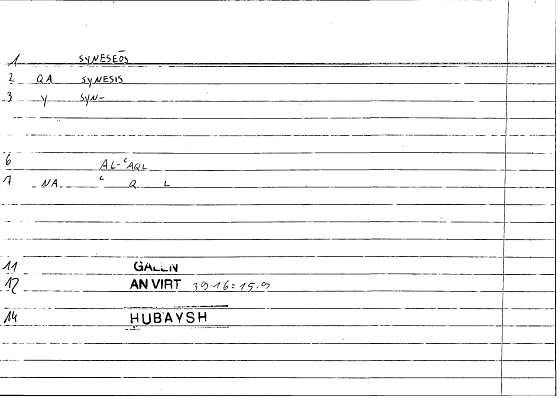 1 SYNESEŌS
2 QA SYNESIS
3 Y SYN-
6 AL-ʿAQL
7 NA ʿ Q L
11 GALEN
12 AN VIRT 39.16:15.9
14 HUBAYSH